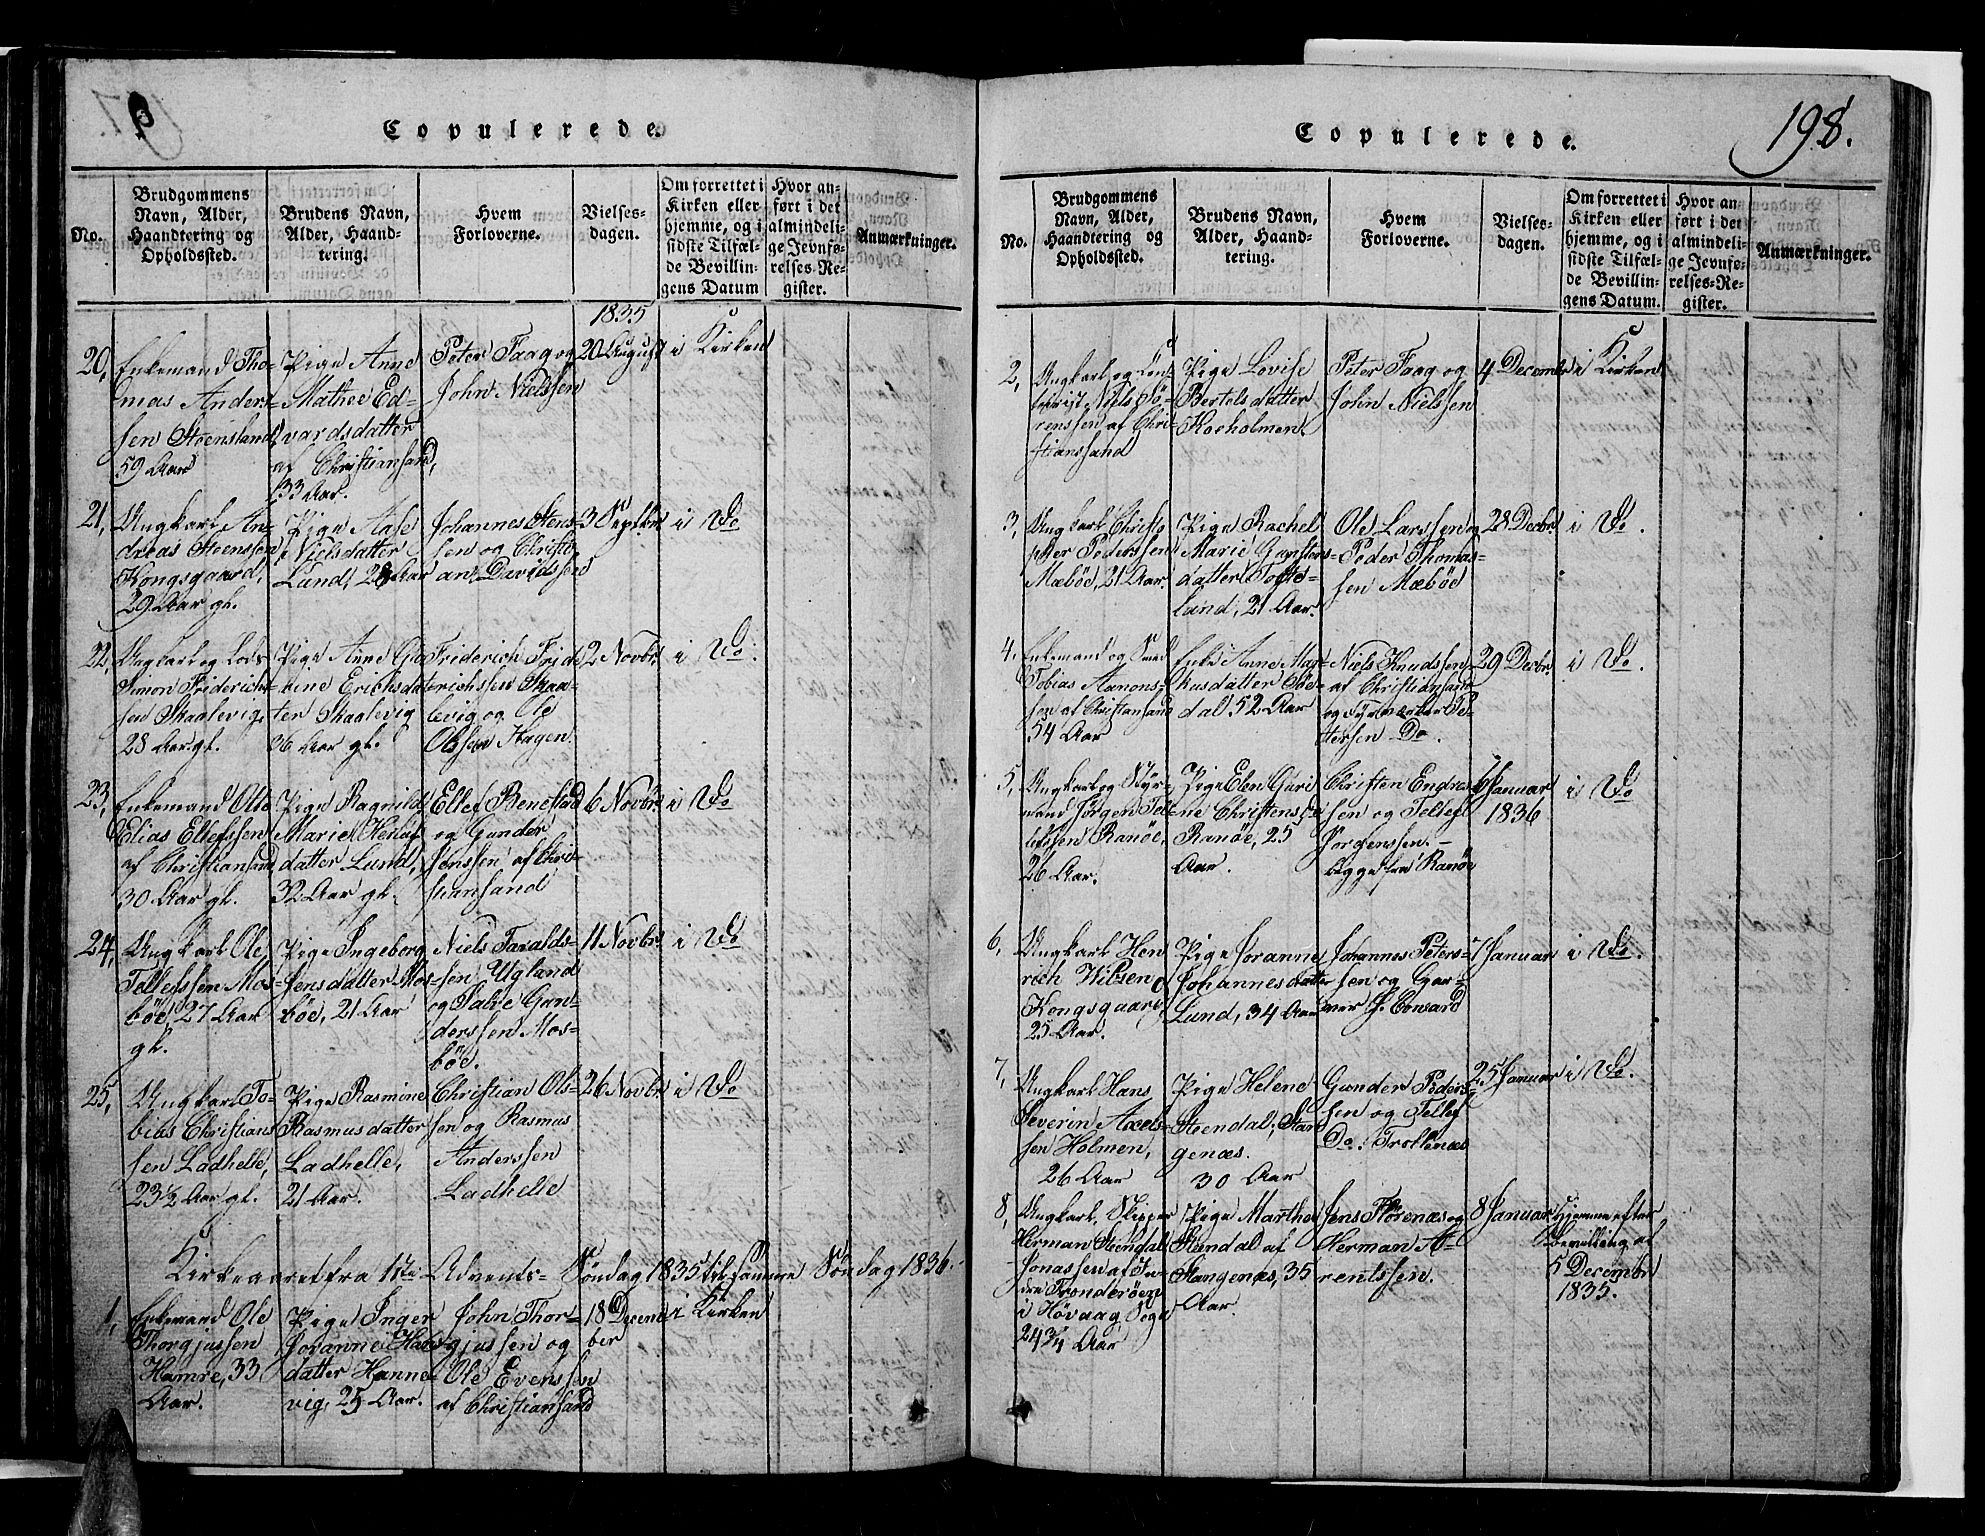 Copulerede.
No.
Brudgommens
Navn, Alder,
Haandtering og
Opholdssted.
Brudens Navn,
Alder, Haand-
tering.
Hvem
Forloverne.
Vielses-
dagen.
Om forrettet i
Kirken eller
hjemme, og i
sidste Tilfæl-
de Bevillin-
gens Datum
Hvor an-
ført i det
almindeli-
ge Jevnfø-
relses-Re-
gister.
Anmærkninger.
1835
20,
Enkemand Tho-
mas Anders-
sen Steensland,
59 Aar
Pige Anne
Mathea Ed-
vardsdatter
af Christiansand,
33 Aar.
Peter Faag og
John Nielssen
20 August
i Kirken
21,
Ungkarl An-
dreas Steenssen
Kongsgaard,
29 Aar gl.
Pige Aase
Nielsdatter
Lund, 28 Aar
Johannes Stens-
sen og Christi-
an Davidssen
3 Septbr
i Do
22,
Ungkarl og Lods
Simon Friderich-
sen Skaalevig,
28 Aar gl.
Pige Anne Gu-
rine Erichsdat-
ter Skaalevig
36 Aar gl.
Friderich Frid-
erichssen Skaa-
levig og Ole
Olssen Hagen.
2 Novbr.
i Do.
23,
Enkemand Ole
Elias Ellefssen
af Christiansand
30 Aar gl.
Pige Ragnild
Marie
datter Lund,
32 Aar gl.
Ellef Benestad
og Gunder
Jenssen af Chri-
stiansand
6 Novbr.
i Do
24,
Ungkarl Ole
Tellefssen Mos-
böe, 27 Aar
gl.
Pige Ingeborg
Jensdatter Mos-
böe, 21 Aar
Niels Taralds-
sen Ugland
og Salve Gun-
derssen Mos-
böe.
11 Novbr.
i Do
25,
Ungkarl To-
bias Christians
sen Ladhelle,
23½ Aar gl.
Pige Rasmine
Rasmusdatter
Ladhelle,
21 Aar.
Christian Ols-
sen og Rasmus
Anderssen
Ladhelle
26 Novbr.
i Do
Kirkeaaret fra 1ste Advents-Söndag 1835 til samme Söndag 1836.
1,
Enkemand Ole
Thorgjussen
Hamre, 33
Aar.
Pige Inger
Joranne Hans-
datter Hanne-
vig, 25 Aar.
John Thor-
gjussen og
Ole Evenssen
af Christiansand
18 Decem-
ber
i Kirken
Copulerede.
198.
No.
Brudgommens
Navn, Alder,
Haandtering og
Opholdssted.
Brudens Navn,
Alder, Haand-
tering.
Hvem
Forloverne.
Vielses-
dagen.
Om forrettet i
Kirken eller
hjemme, og i
sidste Tilfæl-
de Bevillin-
gens Datum.
Hvor an
ført i det
almindeli-
ge Jevnfø-
relses-Re-
gister.
Anmærkninger.
2,
Ungkarl og
Niels Sö-
renssen af Chri-
stianssand
Pige Lovise
Bertelsdatter
Koeholmen.
Peter Faag og
John Nielssen
4 Decembr
i Kirken
3,
Ungkarl Christo
pher Pederssen
Mæböe, 21 Aar.
Pige Rachel
Marie
datter
land, 21 Aar.
Ole Larssen og
Peder Thomas-
sen Mæböe
28 Decbr.
i Do.
4.
Enkemand og Smed
Tobias Aanons-
sen af Christiansand
54 Aar
Enke Anne Mar-
kusdatter
dal 52 Aar
Niels Knudssen
af Christiansand
og Fyrverker Pe-
terssen Do.
29 Decbr.
i Do.
5,
Ungkarl og Styr-
mand Jörgen Tel-
lefssen Ranöe,
26 Aar.
Pige Elen Guri
ne Christensd.
Ranöe, 25
Aar.
Christen Endres
sen og Tellef
Jorgenssen.-
begge fra Ranöe
6 Januar
1836
i Do
6,
Ungkarl Hen
rich Nilsen
Kongsgaard
25 Aar.
Pige Joranne
Johannesdatter
Lund, 34 Aar
Johannes Peters-
sen og Gar-
ver J. Conrard
7 Januar
i Do.
7,
Ungkarl Hans
Severin Axels-
sen Holmen,
26 Aar
Pige Helene
Steendal, Stan
genæs.
30 Aar
Gunder Peders
sen og Tellef
Do. Trollenæs
25 Januar
i Do.
8,
Ungkarl, Skipper
Herman Steindal
Jonassen af In-
dre Tronderöen
i Hövaag Sogn
24¾ Aar
Pige Marthe
Steendal af
Stangenæs, 35
Aar.
Jens Florenæs og
Herman A-
rentssen.
8 Januar
Hjemme efter
Bevilling af
5 Decembr
1835.